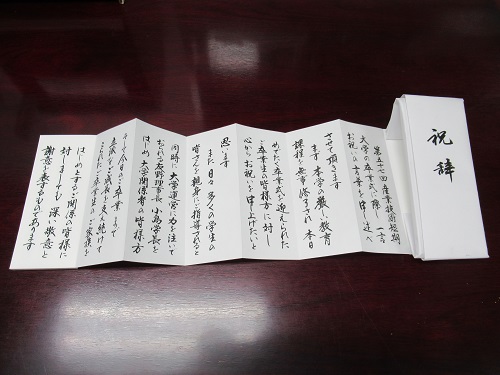 祝辞
第五十七回 産業技術短期
大学の卒業式に際し 一言
お祝いの言葉を申し述べ
させて頂きます
本学の厳しい教育
課程を無事修了され 本日
めでたく卒業式を迎えられた
ご卒業生の皆様方に対し
心からお祝いを申し上げたいと
思います
また 日々多くの学生の
皆さんを熱心にご指導されると
同時に 大学運営に力を注いで
おられる 理事長 小島学長を
はじめ 大学関係者の皆様方
そして今日のご卒業まで
立派なご成長を支え続けて
こられたご卒業生のご家族を
はじめとするご関係の皆様に
対しましても 深い敬意と
謝意を表するものであります